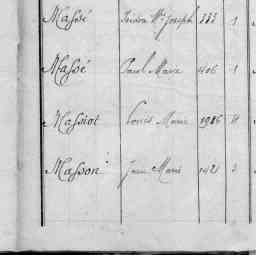 Massé Joseph 333 1
Massé Paul Marc 406 1
Massiot Louis Marie 1986 H
Masson Jean Marie 1421 3